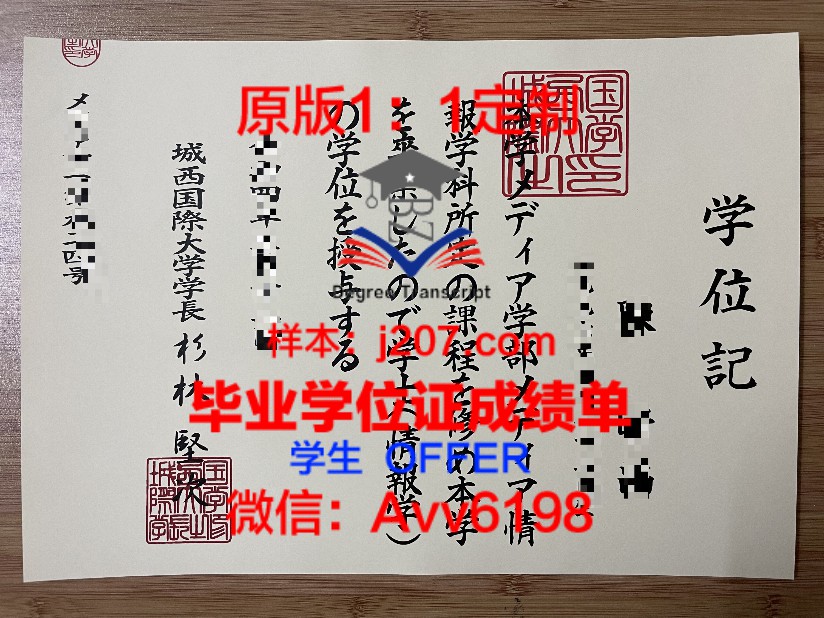 学位記
本学メディア学部メディア情
報学科所定の課程を修め本学
を卒業したので学士(情報学)
の学位を授与する
城西国際大学学長 杉林 堅次
原版1：1定制
Degree Transcript
样本：j207.com
毕业学位证成绩单
学生 OFFER
微信：Avv6198